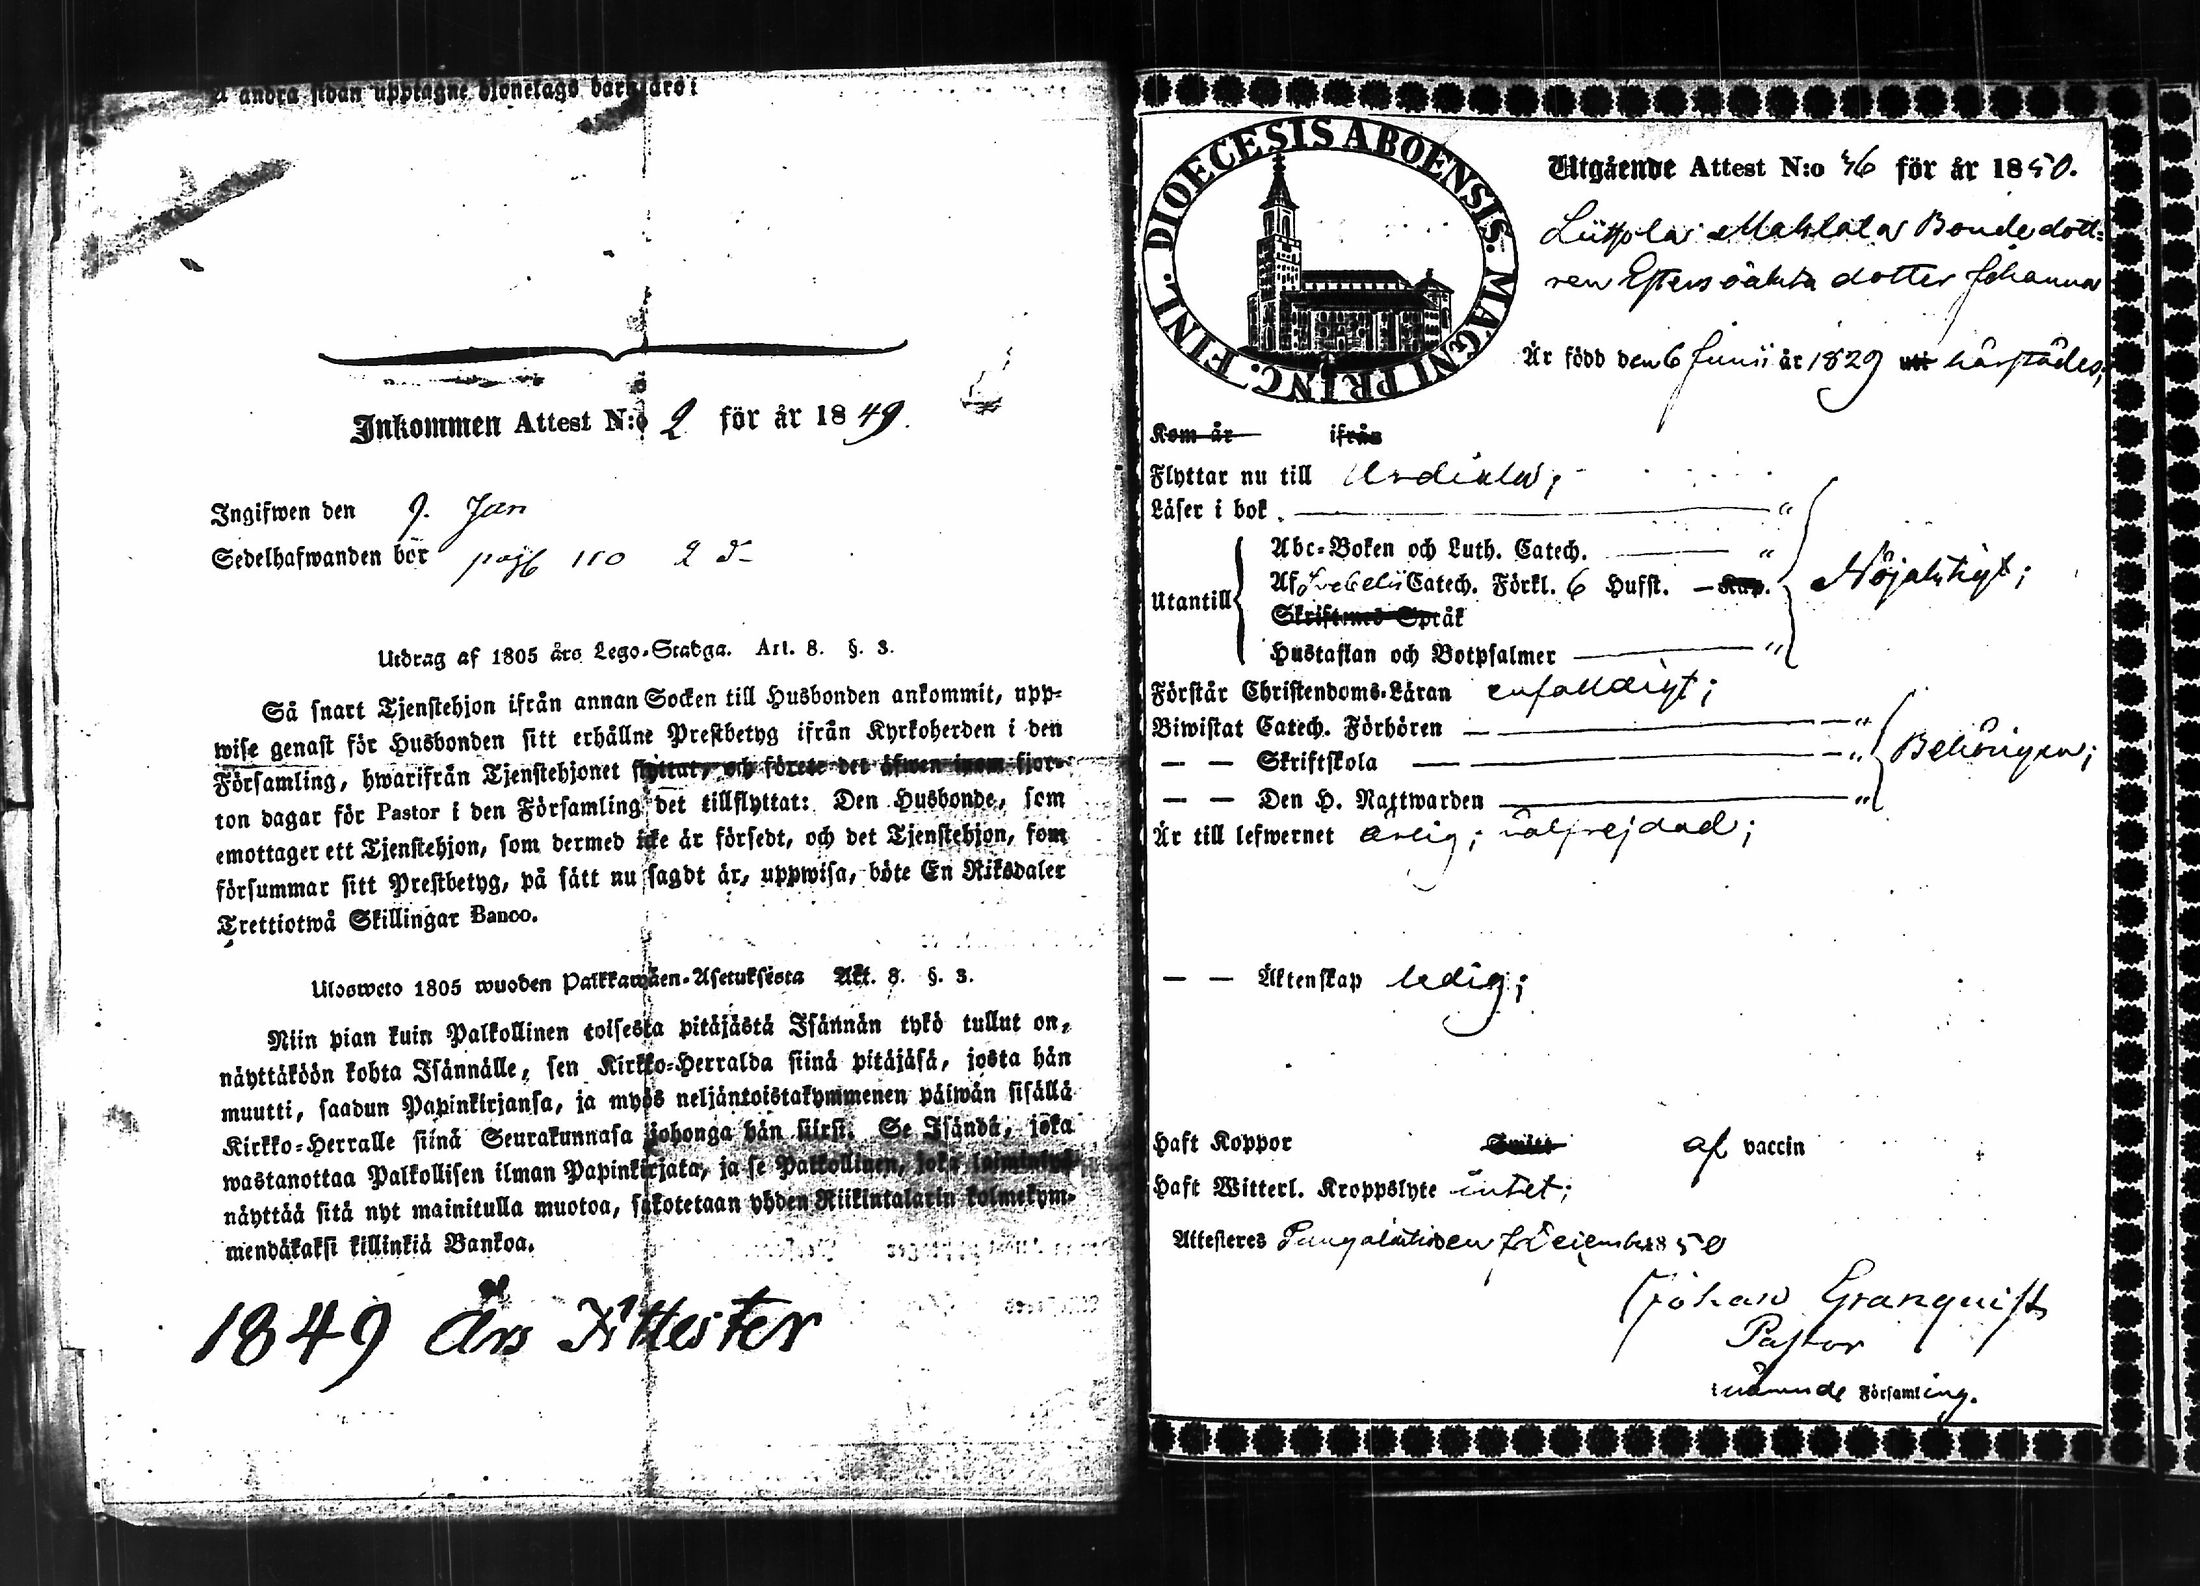 å andra sidan upptagne hjonelags barn äro:
Inkommen Attest N:o 2 för år 1849.
Ingifwen den 9. Jan
Sedelhafwanden bör pag 110
Utdrag af 1805 års Lego-Stadga. Art. 8. §. 3.
Så snart Tjenstehjon ifrån annan Socken till Husbonden ankommit, upp-
wise genast för Husbonden sitt erhållne Prestbetyg ifrån Kyrkoherden i den
Församling, hwarifrån Tjenstehjonet flyttat, och förete det äfwen inom fjor-
ton dagar för Pastor i den Församling det tillflyttat: Den Husbonde, som
emottager ett Tjenstehjon, som dermed icke är försedt, och det Tjenstehjon, som
försummar sitt Prestbetyg, på sätt nu sagdt är, uppwisa, böte En Riksdaler
Trettiotwå Skillingar Banco.
Ulosweto 1805 wuoden Palkkawäen-Asetuksesta Art. 8. §. 3.
Niin pian kuin Palkollinen toisesta pitäjästä Isännän tykö tullut on,
näyttäköön kohta Isännälle, sen Kirkko-Herralda siinä pitäjäsä, josta hän
muutti, saadun Papinkirjansa, ja myös neljäntoistakymmenen päiwän sisällä
Kirkko-Herralle siinä Seurakunnasa johonga hän siirsi. Se Isändä, joka
wastanottaa Palkollisen ilman Papinkirjata, ja se Palkollinen, joka laiminlyö
näyttää sitä nyt mainitulla muotoa, sakotetaan yhden Riikintalarin kolmekym-
mendäkaksi killinkiä Bankoa.
1849 Års Attester
DIOECESIS ABOENSIS. MAGNI PRINC. FINL.
Utgående Attest N:o 46 för år 1850.
Bondedott-
ren dotter Johanna
Är född den 6 Junii år 1829 uti härstädes;
Kom år ifrån
Flyttar nu till Urdiala;
Läser i bok "
Abc-Boken och Luth. Catech. "
Af Svebelii Catech. Förkl. 6 Hufst. – Kap. Nöjaktigt;
Utantill
Skriftenes Språk
Hustaflan och Botpsalmer "
Förstår Christendoms-Läran enfaldigt;
Biwistat Catech. Förhören "
— — Skriftskola " Behörigen;
— — Den H. Nattwarden "
Är till lefwernet ärlig; välfrejdad;
— — Äktenskap ledig;
Haft Koppor af vaccin
Haft Witterl. Kroppslyte intet;
Attesteres den 7 Decemb. 1850
Johan Granquist
Pastor
i nämnde Församling.